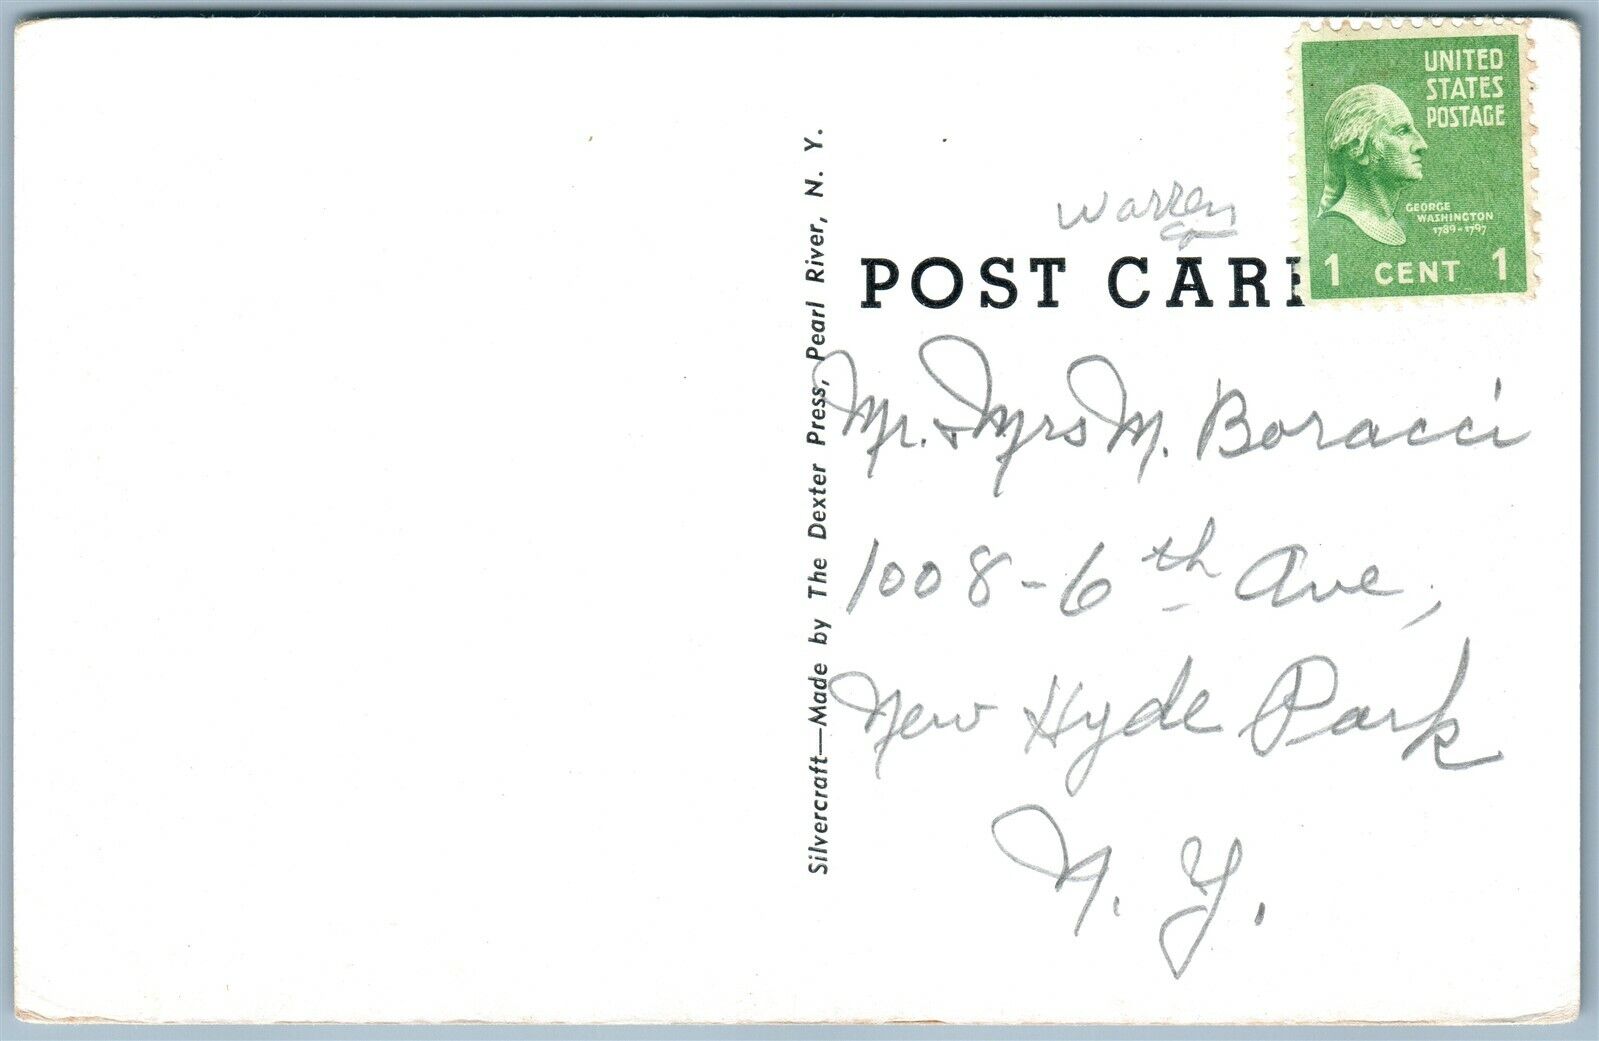 UNITED
STATES
POSTAGE
GEORGE
WASHINGTON
1789-1797
1 CENT 1
Warren
Co
POST CAR
Silvercraft—Made by The Dexter Press, Pearl River, N. Y.
Mr. & Mrs M. Boracci
1008-6th Ave,
New Hyde Park
N. Y.